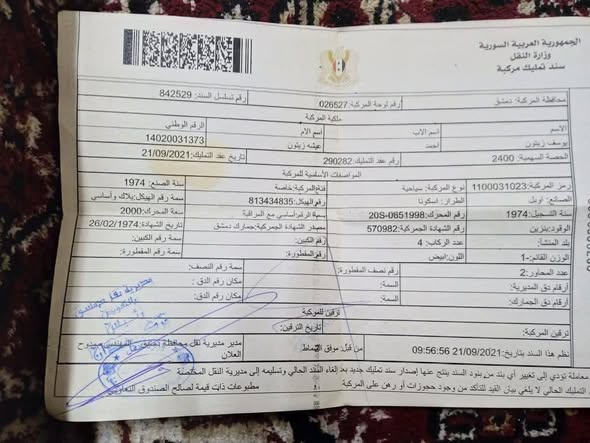 الجمهورية العربية السورية
وزارة النقل
سند تمليك مركبة
محافظة المركبة: دمشق رقم لوحة المركبة: 026527 رقم تسلسل السند: 842529
ملكية المركبة
الاسم اسم الاب اسم الام الرقم الوطني
يوسف زيتون احمد عيشه زيتون 14020031373
الحصة السهمية: 2400 رقم عقد التمليك: 290282 تاريخ عقد التمليك: 21/09/2021
المواصفات الأساسية للمركبة
رمز المركبة: 1100031023 نوع المركبة: سياحية فئة المركبة: خاصة سنة الصنع: 1974
الصانع: اوبل الطراز: اسكونا رقم الهيكل: 813434835 سمة رقم الهيكل: بلاك وأساسي
سنة التسجيل: 1974 رقم المحرك: 20S-0651998 سمة رقم المحرك: أساسي مع المراقبة سعة المحرك: 2000
الوقود: بنزين رقم الشهادة الجمركية: 570982 مصدر الشهادة الجمركية: جمارك دمشق تاريخ الشهادة: 26/02/1974
بلد المنشأ: عدد الركاب: 4 رقم الكبين: سمة رقم الكبين:
الوزن القائم: 1- اللون: ابيض رقم المقطورة: سمة رقم المقطورة:
عدد المحاور: 2 رقم نصف المقطورة: سمة رقم النصف:
أرقام دق المديرية: السمة: مكان رقم الدق:
أرقام دق الجمارك: السمة: مكان رقم الدق:
ترقين للمركبة
ترقين المركبة: تاريخ الترقين:
نظم هذا السند بتاريخ: 21/09/2021 09:56:56 من قبل: موفق مدير مديرية نقل محافظة دمشق
العلان
معاملة تؤدي إلى تغيير أي بند من بنود السند ينتج عنها إصدار سند تمليك جديد بعد إلغاء السند الحالي وتسليمه إلى مديرية النقل المختصة
التمليك الحالي لا يلغي بيان القيد للتأكد من وجود حجوزات أو رهن على المركبة مطبوعات ذات قيمة لصالح الصندوق
مديرية نقل دمشق